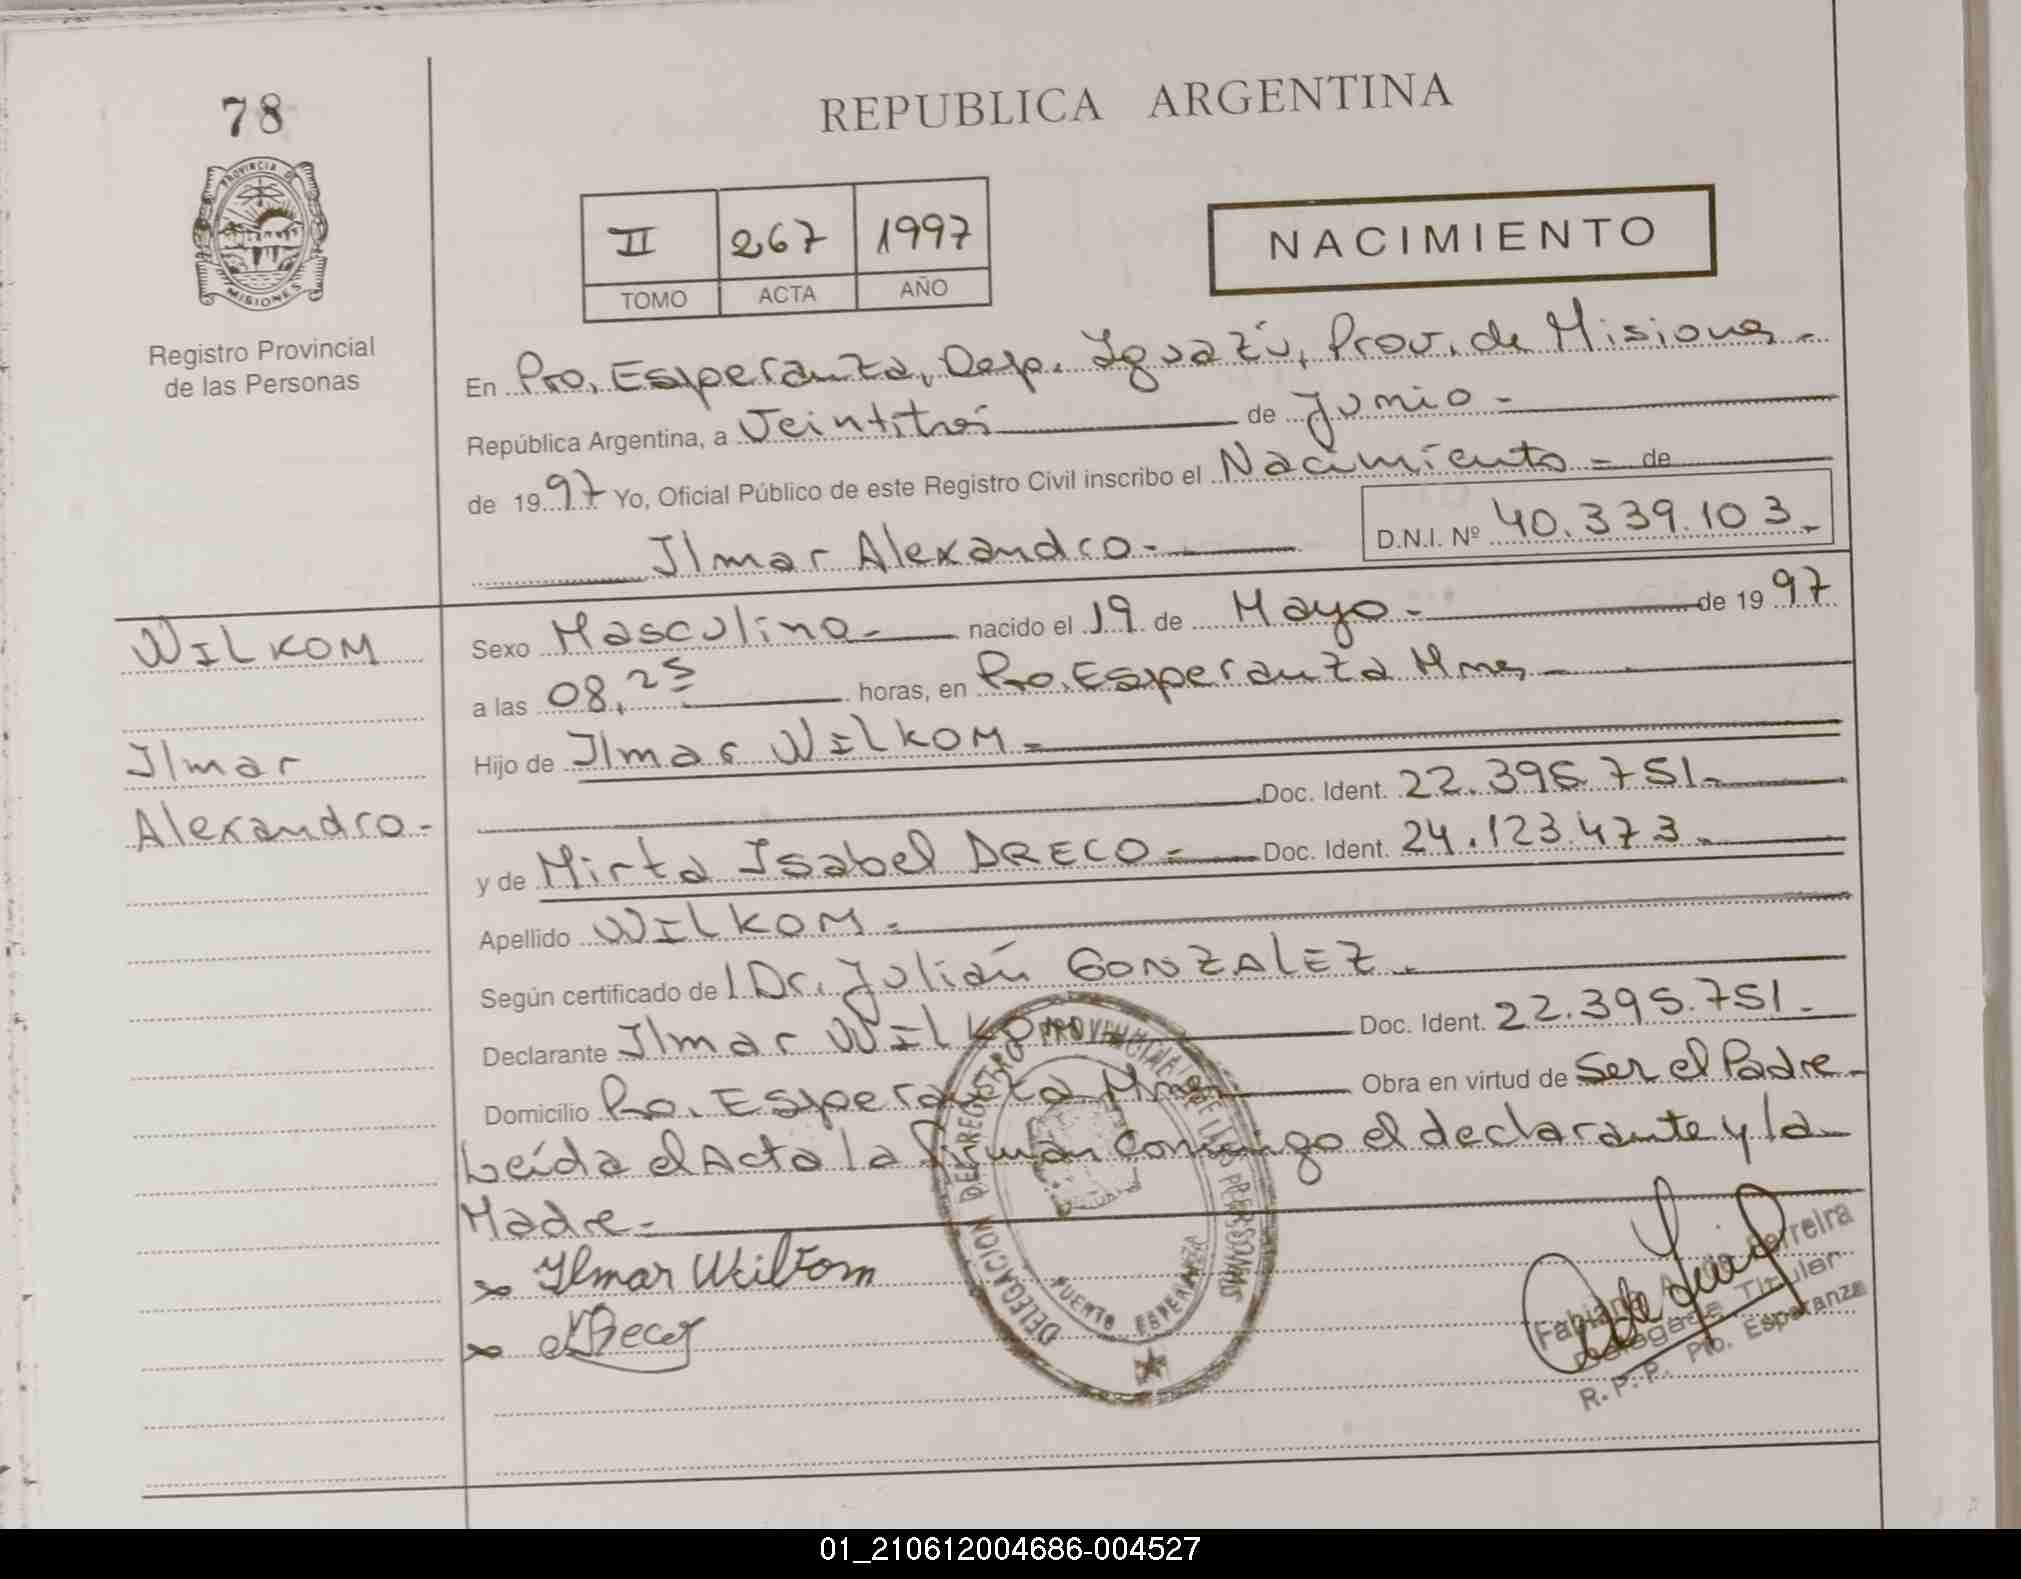 78
REPUBLICA ARGENTINA
PROVINCIA D
MISIONES
Registro Provincial
de las Personas
II 267 1997
TOMO ACTA AÑO
NACIMIENTO
En Pto. Esperanza, Dep. Iguazú, Prov. de Misiones.-
República Argentina, a Veintitrés de Junio -
de 1997 Yo, Oficial Público de este Registro Civil inscribo el Nacimiento - de
Ilmar Alexandro.- D.N.I. Nº 40.339.103.-
WILKOM
Sexo Masculino.- nacido el 19 de Mayo.- de 1997
a las 08,25 horas, en Pto. Esperanza Mnes.-
Ilmar
Hijo de Ilmar WILKOM.-
Doc. Ident. 22.395.751.-
Alexandro.-
y de Mirta Isabel DRECO.- Doc. Ident. 24.123.473.-
Apellido WILKOM.-
Según certificado de l Dr. Julián GONZALEZ.-
Declarante Ilmar WILKOM Doc. Ident. 22.395.751.-
Domicilio Pto. Esperanza Mnes Obra en virtud de Ser el Padre.-
Leída el Acta la firman conmigo el declarante y la
Madre.-
x Ilmar Wilkom
x Dreco
DELEGACION DEL REGISTRO PROVINCIAL DE LAS PERSONAS
PUERTO ESPERANZA
Ferreira
Delegada Titular
R. P. P. Pto. Esperanza
01_210612004686-004527